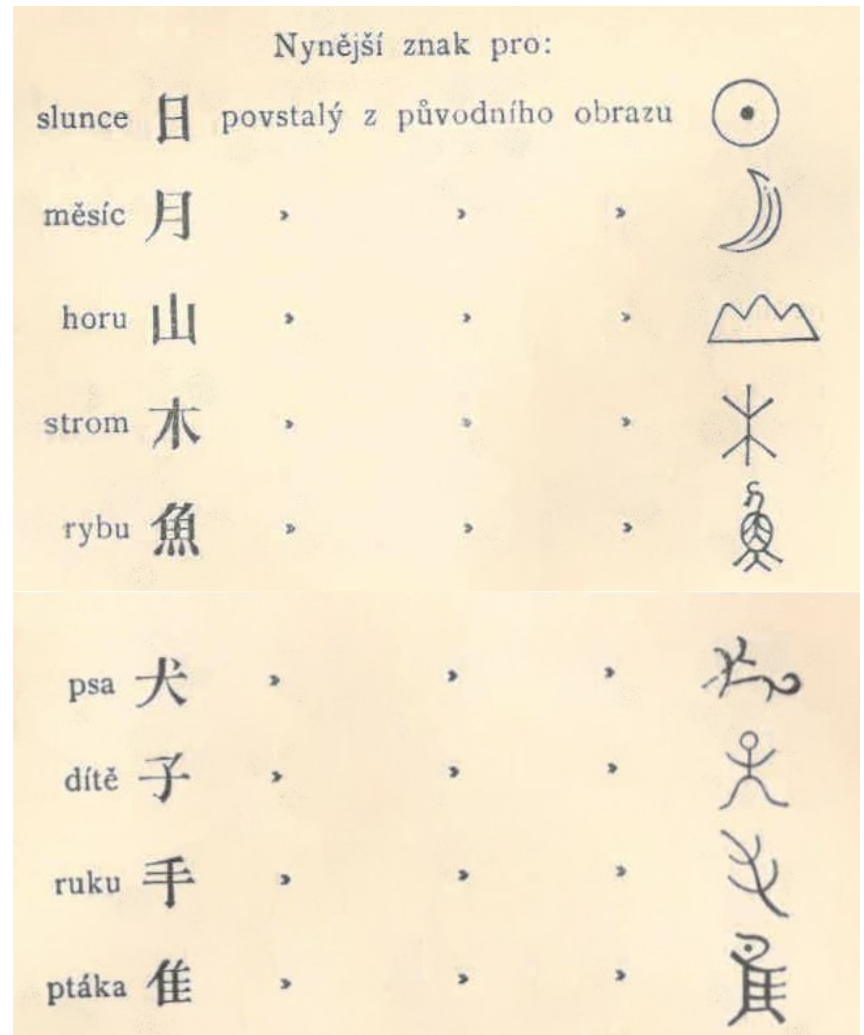 Nynější znak pro:
slunce 日 povstalý z původního obrazu
měsíc 月 » » »
horu 山 » » »
strom 木 » » »
rybu 魚 » » »
psa 犬 » » »
dítě 子 » » »
ruku 手 » » »
ptáka 隹 » » »